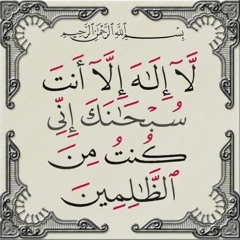 بِسْمِ اللَّهِ الرَّحْمَٰنِ الرَّحِيمِ
لَّآ إِلَٰهَ إِلَّآ أَنتَ
سُبْحَٰنَكَ إِنِّى
كُنتُ مِنَ
ٱلظَّٰلِمِينَ